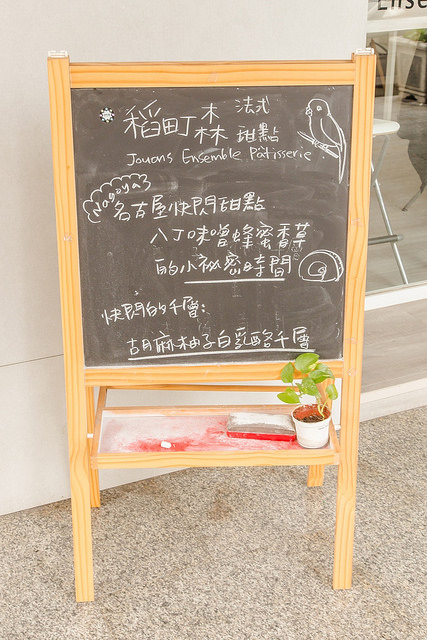 稻町森 法式甜點
Jouons Ensemble Pâtisserie
Nagoya
名古屋快閃甜點
八丁味噌蜂蜜香草
的小祕密時間
快閃的千層:
胡麻柚子白乳酪千層